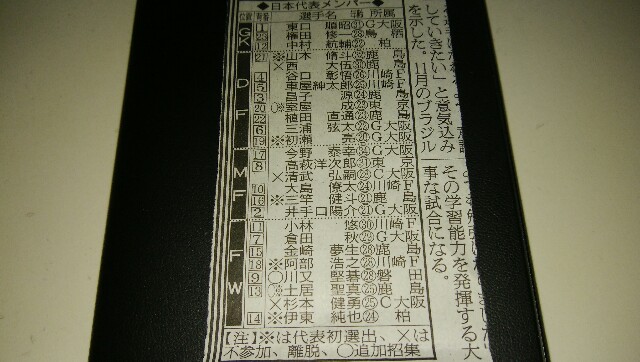 ◆日本代表メンバー◆
位置 背番 選手名 齢 所属
GK
1 東口順昭 31 G大阪
23 権田修一 28 鳥栖
12 中村航輔 22 柏
DF
21 ※山本脩斗 32 鹿島
×西大伍 30 鹿島
4 谷口彰悟 26 川崎F
15 車屋紳太郎 25 川崎F
3 昌子源 鹿島
20 ※室屋成 東京
22 植田直通 鹿島
6 三浦弦太 G大阪
19 ※初瀬亮 G大阪
MF
17 今野泰幸 G大阪
8 高萩洋次郎 31 東京
×清武弘嗣 C大阪
10 大島僚太 川崎F
16 ※三竿健斗 21 鹿島
2 井手口陽介 21 G大阪
FW
11 小林悠 30 川崎F
7 倉田秋 G大阪
15 金崎夢生 28 鹿島
18 ※阿部浩之 28 川崎F
9 ○川又堅碁 28 磐田
13 ○土居聖真 25 鹿島
×杉本健勇 25 C大阪
14 ※伊東純也 24 柏
【注】※は代表初選出、×は
不参加、離脱、○追加招集
していきたい」と意気込み
を示した。11月のブラジル
その学習能力を発揮する大
事な試合になる。